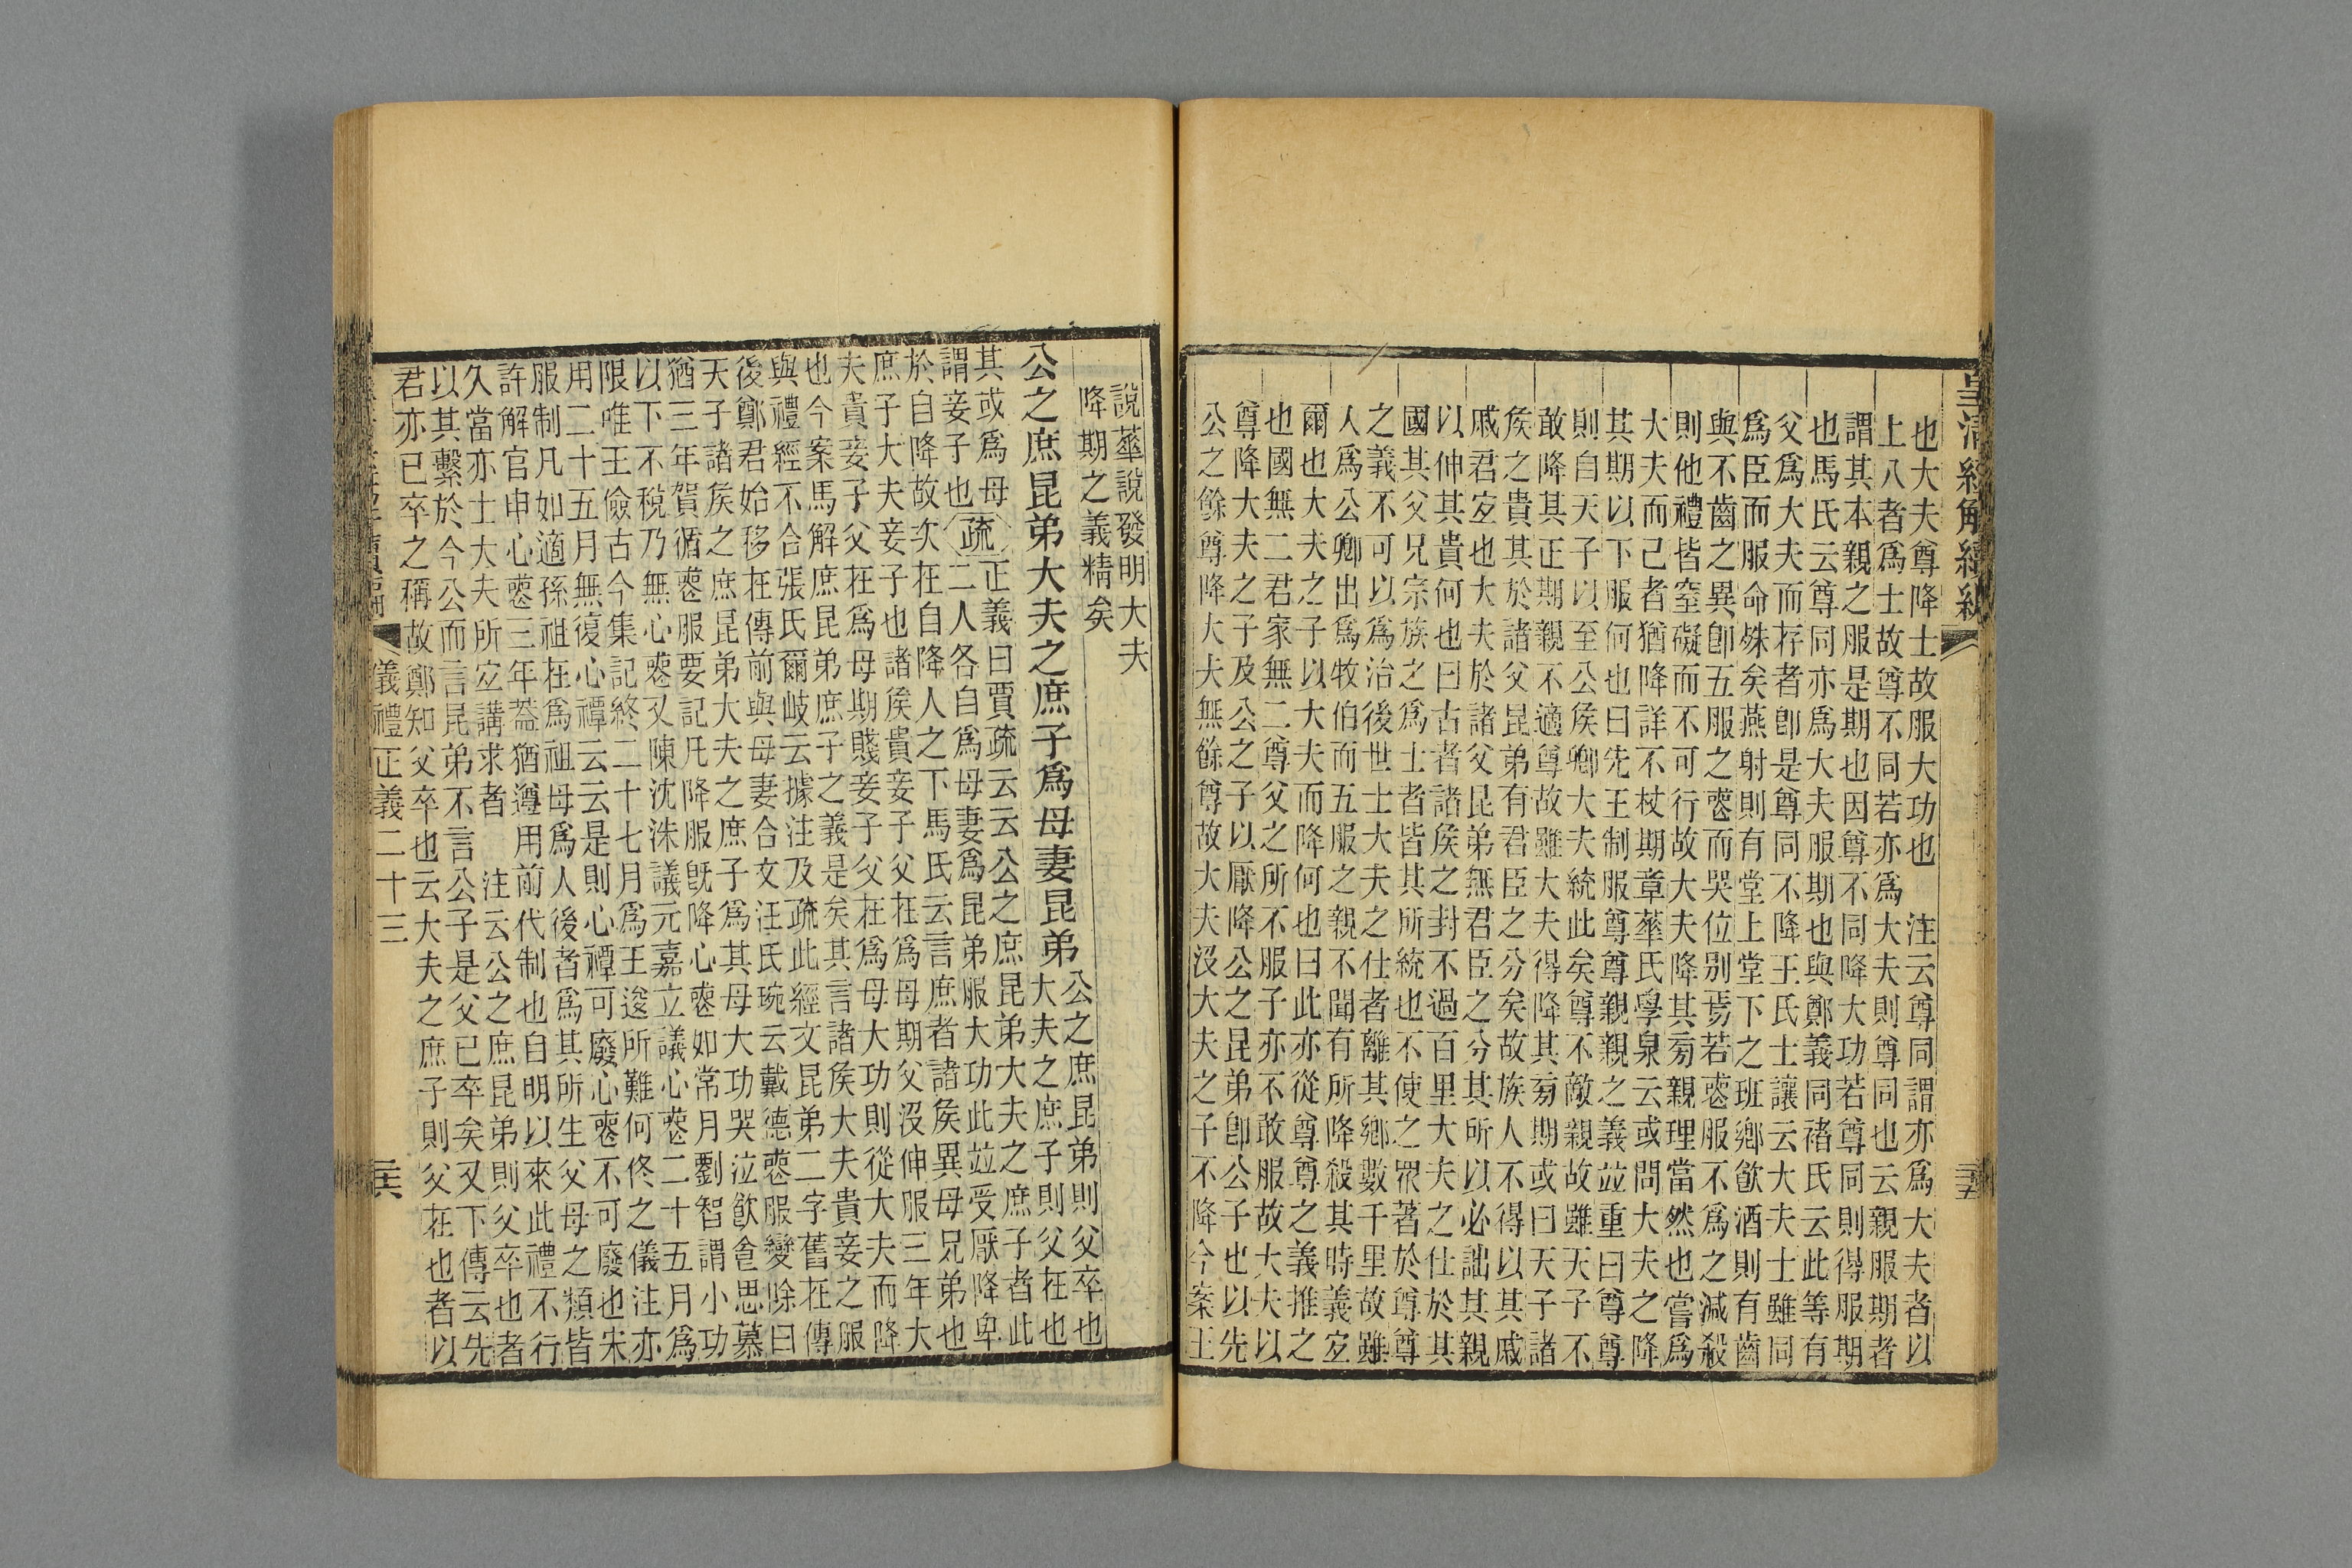 皇清經解續編
也大夫尊降士故服大功也　注云尊同謂亦爲大夫者以
上八者爲士故尊不同若亦爲大夫則尊同也云親服期者
謂其本親之服是期也因尊不同降大功若尊同則得服期
也馬氏云尊同亦爲大夫服期也與鄭義同褚氏云此等有
父爲大夫而存者卽是尊同不降王氏士讓云大夫士雖同
爲臣而服命殊矣燕射則有堂上堂下之班鄉飮酒則有齒
與不齒之異卽五服之䘮而哭位別焉若䘮服不爲之減殺
則他禮皆窒礙而不可行故大夫降其旁親理當然也嘗爲
大夫而己者猶降詳不杖期章華氏學泉云或問大夫之降
其期以下服何也曰先王制服尊尊親親之義竝重曰尊尊
則自天子以至公侯卿大夫統此矣尊不敵親故雖天子不
敢降其正期親不適尊故雖大夫得降其旁期或曰天子諸
侯之貴其於諸父昆弟有君臣之分矣故族人不得以其戚
戚君宐也大夫於諸父昆弟無君臣之分其所以必詘其親
以伸其貴何也曰古者諸侯之封不過百里大夫之仕於其
國其父兄宗族之爲士者皆其所統也不使之眾著於尊尊
之義不可以爲治後世士大夫之仕者離其鄉數千里故雖
人爲公卿出爲牧伯而五服之親不聞有所降殺其時義宐
爾也大夫之子以大夫而降何也曰此亦從尊尊之義推之
也國無二君家無二尊父之所不服子亦不敢服故大夫以
尊降大夫之子及公之子以厭降公之昆弟卽公子也以先
公之餘尊降大夫無餘尊故大夫沒大夫之子不降今案王
說華說發明大夫
降期之義精矣
公之庶昆弟大夫之庶子爲母妻昆弟
公之庶昆弟則父卒也
大夫之庶子則父在也
其或爲母
謂妾子也疏正義曰賈疏云云公之庶昆弟大夫之庶子者此
二人各自爲母妻爲昆弟服大功此竝受厭降卑
於自降故次在自降人之下馬氏云言庶者諸侯異母兄弟也
庶子大夫妾子也諸侯貴妾子父在爲母期父沒伸服三年大
夫貴妾子父在爲母期賤妾子父在爲母大功則從大夫而降
也今案馬解庶昆弟庶子之義是矣其言諸侯大夫貴妾之服
與禮經不合張氏爾岐云據注及疏此經文昆弟二字舊在傳
後鄭君始移在傳前與母妻合文汪氏琬云戴德䘮服變除曰
天子諸侯之庶昆弟大夫之庶子爲其母大功哭泣飮食思慕
猶三年賀循䘮服要記凡降服旣降心䘮如常月劉智謂小功
以下不稅乃無心䘮又陳沈洙議元嘉立議心䘮二十五月爲
限唯王儉古今集記終二十七月爲王逡所難何佟之儀注亦
用二十五月無復心禫云云是則心禫可廢心䘮不可廢也宋
服制凡如適孫祖在爲祖母爲人後者爲其所生父母之類皆
許解官申心䘮三年葢猶遵用前代制也自明以來此禮不行
久當亦士大夫所宐講求者　注云公之庶昆弟則父卒也者
以其繫於今公而言昆弟不言公子是父已卒矣又下傳云先
君亦已卒之稱故鄭知父卒也云大夫之庶子則父在也者以
儀禮正義二十三